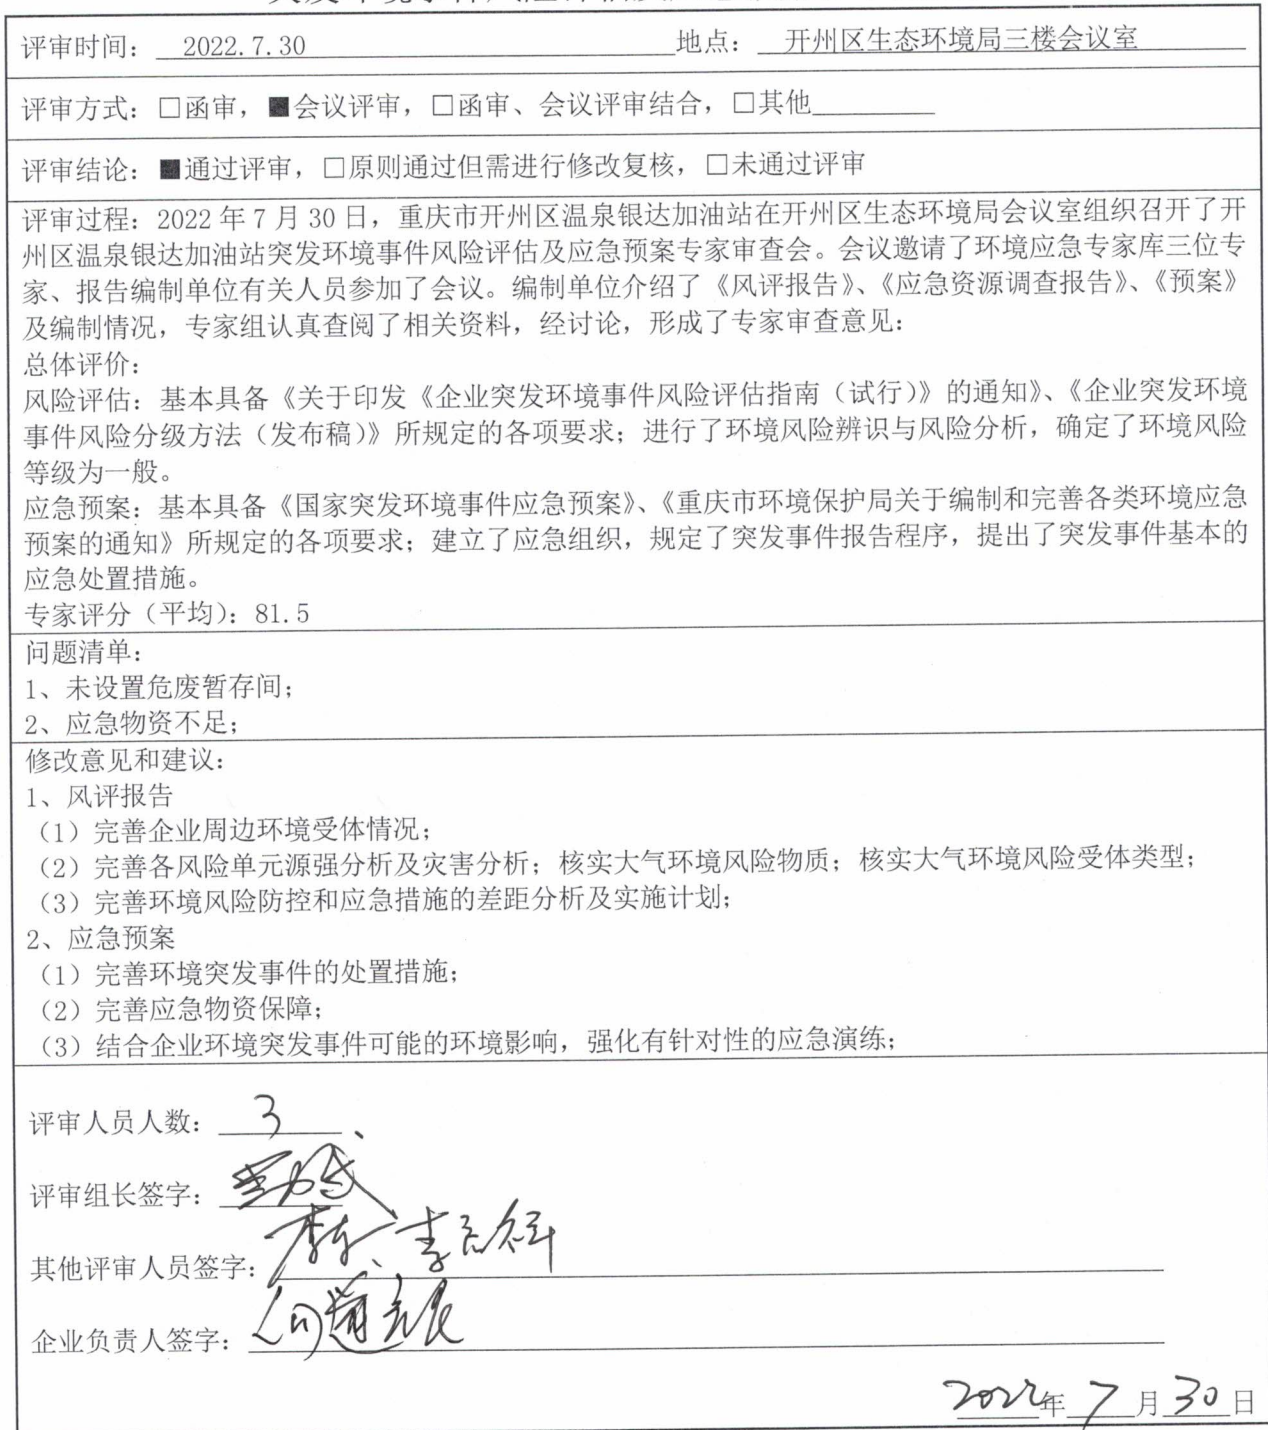 评审时间： 2022.7.30 地点： 开州区生态环境局三楼会议室
评审方式：□函审，■会议评审，□函审、会议评审结合，□其他
评审结论：■通过评审，□原则通过但需进行修改复核，□未通过评审
评审过程：2022年7月30日，重庆市开州区温泉银达加油站在开州区生态环境局会议室组织召开了开
州区温泉银达加油站突发环境事件风险评估及应急预案专家审查会。会议邀请了环境应急专家库三位专
家、报告编制单位有关人员参加了会议。编制单位介绍了《风评报告》、《应急资源调查报告》、《预案》
及编制情况，专家组认真查阅了相关资料，经讨论，形成了专家审查意见：
总体评价：
风险评估：基本具备《关于印发《企业突发环境事件风险评估指南（试行）》的通知》、《企业突发环境
事件风险分级方法（发布稿）》所规定的各项要求；进行了环境风险辨识与风险分析，确定了环境风险
等级为一般。
应急预案：基本具备《国家突发环境事件应急预案》、《重庆市环境保护局关于编制和完善各类环境应急
预案的通知》所规定的各项要求；建立了应急组织，规定了突发事件报告程序，提出了突发事件基本的
应急处置措施。
专家评分（平均）：81.5
问题清单：
1、未设置危废暂存间；
2、应急物资不足；
修改意见和建议：
1、风评报告
（1）完善企业周边环境受体情况；
（2）完善各风险单元源强分析及灾害分析；核实大气环境风险物质；核实大气环境风险受体类型；
（3）完善环境风险防控和应急措施的差距分析及实施计划；
2、应急预案
（1）完善环境突发事件的处置措施；
（2）完善应急物资保障；
（3）结合企业环境突发事件可能的环境影响，强化有针对性的应急演练；
评审人员人数： 3
评审组长签字：
其他评审人员签字：
企业负责人签字：
2022年 7 月 30 日